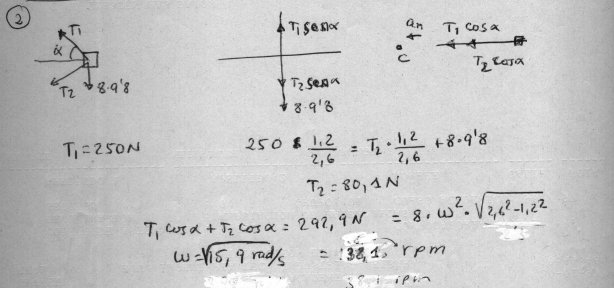 2
T₁
α
T₂
8·9'8
T₁ senα
T₂ senα
8·9'8
aₙ
C
T₁ cosα
T₂ cosα
T₁ = 250N
250 · 1,2/2,6 = T₂ · 1,2/2,6 + 8·9'8
T₂ = 80,1N
T₁ cosα + T₂ cosα = 292,9N = 8 · ω² · √2,6²-1,2²
ω = √15,9 rad/s = 38,1 rpm